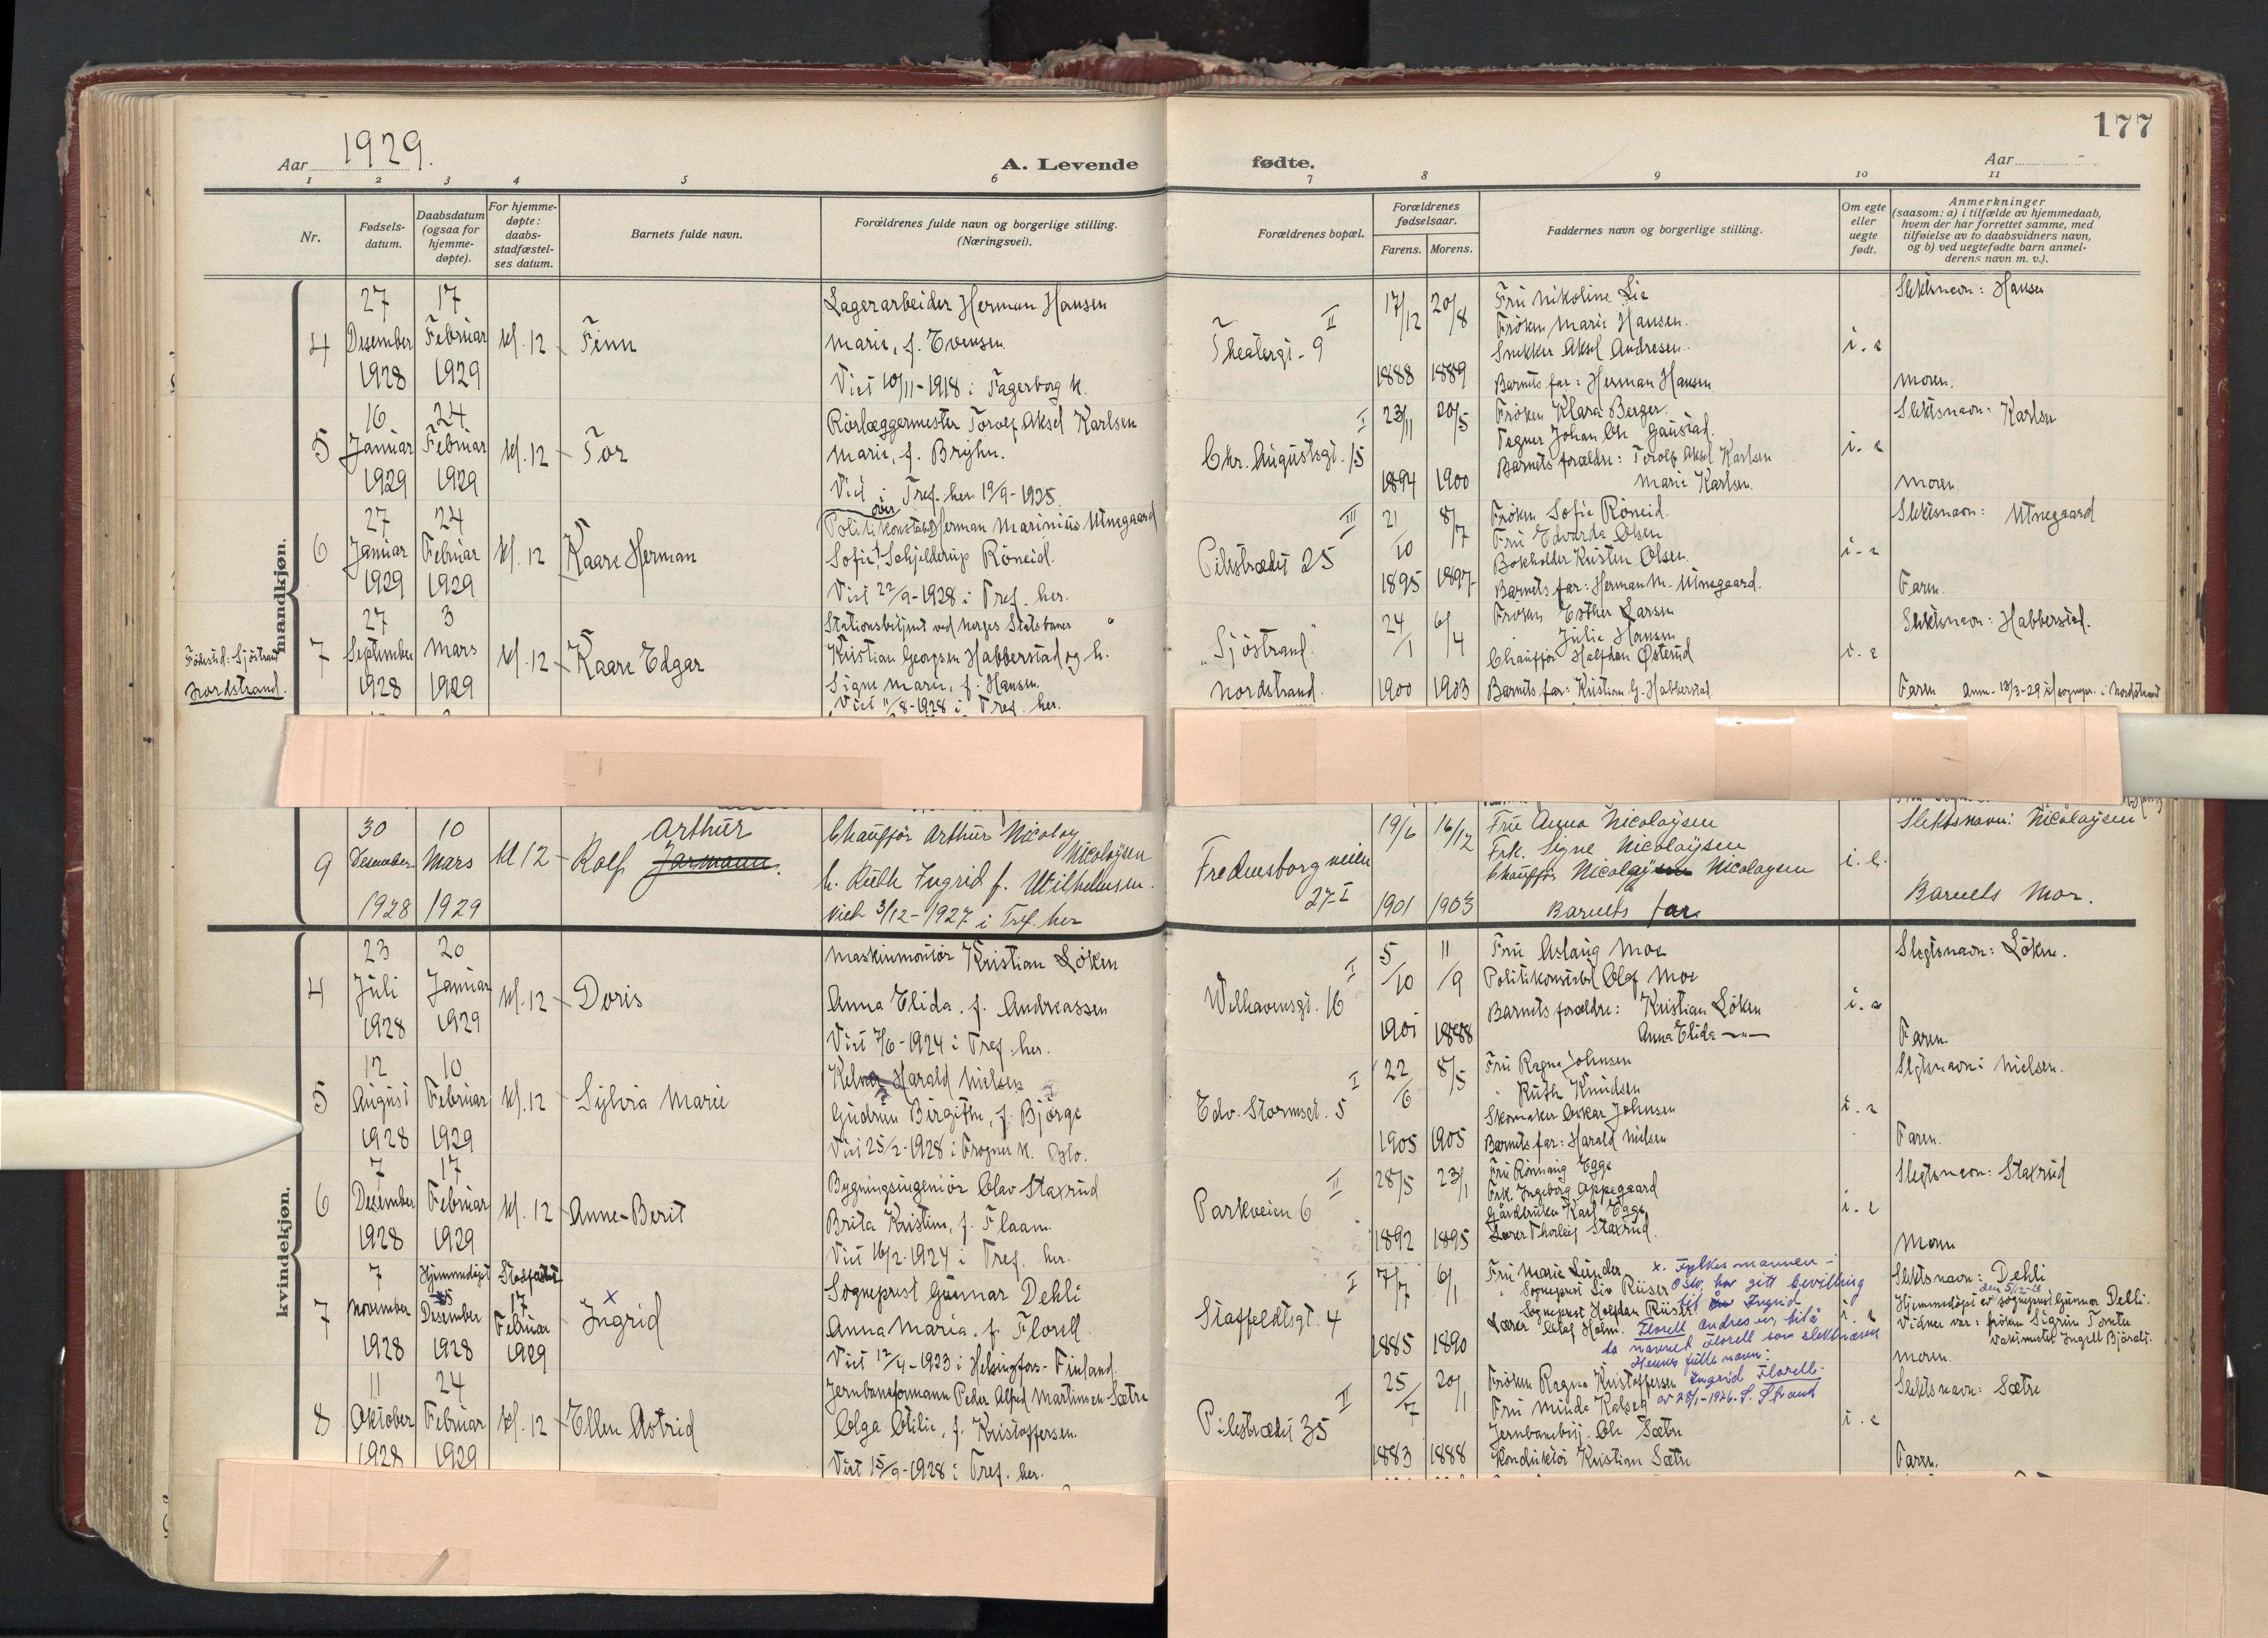 177
Aar 1929.
A. Levende
fødte.
Aar
1 2 3 4 5 6 7 8 9 10 11
Nr.
Fødsels-
datum.
Daabsdatum
(ogsaa for
hjemme-
døpte).
For hjemme-
døpte:
daabs-
stadfæstel-
ses datum.
Barnets fulde navn.
Forældrenes fulde navn og borgerlige stilling.
(Næringsvei).
Forældrenes bopæl.
Forældrenes
fødselsaar.
Farens. Morens.
Faddernes navn og borgerlige stilling.
Om egte
eller
uegte
født.
Anmerkninger
(saasom: a) i tilfælde av hjemmedaab,
hvem der har forrettet samme, med
tilføielse av to daabsvidners navn,
og b) ved uegtefødte barn anmel-
derens navn m. v.).
mandkjøn.
4
27
Desember
1928
17
Februar
1929
kl. 12
Finn
Lagerarbeider Herman Hansen
Marie, f. Evensen
Viet 10/11-1918 i Fagerborg k.
Theatergt. 9 II
17/12 1888
20/8 1889
Fru Nikoline Lie
Frøken Marie Hansen.
Snekker Aksel Andresen.
Barnets far: Herman Hansen
i. e
Slektsnavn: Hansen
Moren.
5
16
Januar
1929
24
Februar
1929
kl. 12
Tor
Rørlæggermester Torolf Aksel Karlsen
Marie, f. Bryhn.
Viet i Tref. her 19/9-1925.
Chr. Augustsgt. 15 I
23/11 1894
20/5 1900
Frøken Klara Berger.
Tegner Johan Chr. Gaustad.
Barnets forældre: Torolf Aksel Karlsen
Marie Karlsen.
i. e
Slektsnavn: Karlsen
Moren
6
27
Januar
1929
24
Februar
1929
kl. 12
Kaare Herman
over
Politikonstabel Herman Marinius Utnegaard
Sofie Schjelderup Röneid.
Viet 22/9-1928 i Tref. her.
Pilestrædet 25 III
21/10 1895
8/7 1897
Frøken Sofie Röneid.
Fru Edvarda Olsen
Bokholder Kristen Olsen.
Barnets far: Herman M. Utnegaard.
i. e
Slektsnavn: Utnegaard
Faren.
Fødested: Sjöstrand
Nordstrand.
7
27
September
1928
3
Mars
1929
kl. 12
Kaare Edgar
Stationsbetjent ved Norges Statsbaner
Kristian Georgsen Habberstad og h.
Signe Marie, f. Hansen.
Viet 11/8-1928 i Tref. her.
"Sjöstrand"
Nordstrand.
24/1 1900
6/4 1903
Frøken Esther Larsen
" Julie Hansen
Chauffør Halfdan Østerud
Barnets far: Kristian G. Habberstad
i. e
Slektsnavn: Habberstad.
Faren Anm. 13/3-29 til sognepr. i Nordstrand
9
30
Desember
1928
10
Mars
1929
kl 12
Arthur
Rolf Jarmann.
Chauffør Arthur Nicolay
Nicolaysen
h. Ruth Ingrid f. Wilhelmsen.
viet 3/12-1927 i Tref. her
Fredensborgveien
27 I
19/6 1901
16/12 1903
Fru Anna Nicolaysen
Frk. Signe Nicolaysen
Chauffør Nicolay Nicolaysen
Barnets far
i. e.
Slektsnavn: Nicolaysen
Barnets Mor.
kvindekjøn.
4
23
Juli
1928
20
Januar
1929
kl. 12
Doris
Maskinmontør Kristian Löken
Anna Elida, f. Andreassen
Viet 7/6-1924 i Tref. her.
Welhavensgt. 16 I
5/10 1901
11/9 1888
Fru Aslaug Moe
Politikonstabel Olaf Moe
Barnets forældre: Kristian Löken
Anna Elida —"—
i. e
Slegtsnavn: Löken.
Faren.
5
12
August
1928
10
Februar
1929
kl. 12
Sylvia Marie
Kelner Harald Nielsen
Gudrun Birgithe, f. Bjørge
Viet 25/2-1928 i Frogner k. Oslo.
Edv. Stormsgt. 5 I
22/6 1905
8/5 1905
Fru Ragna Johnsen
" Ruth Knudsen
Skomaker Oskar Johnsen
Barnets far: Harald Nielsen
i. e
Slgtsnavn: Nielsen.
Faren.
6
7
Desember
1928
17
Februar
1929
kl. 12
Anne-Berit
Bygningsingeniør Olav Staxrud
Brita Kristine, f. Flaam.
Viet 16/2-1924 i Tref. her.
Parkveien 6 II
28/5 1892
23/1 1895
Fru Rönnaug Egge
Frk. Ingeborg Oppegaard
Gårdbruker Karl Egge
Lærer Thorleif Staxrud.
i. e
Slegtsnavn: Staxrud
Moren
7
7
November
1928
Hjemmedøpt
5
Desember
1928
Stadfæstet
17
Februar
1929
x
Ingrid
Sogneprest Gunnar Dehli
Anna Maria, f. Florell
Viet 12/4-1923 i Helsingfors - Finland.
Staffeldtsgt. 4 I
7/7 1885
6/1 1890
Fru Marie Lunder
" Sogneprest Liv Riiser
Sogneprest Halfdan Riiser
Lærer Olaf Holm.
x. Fylkesmannen i
Oslo har gitt bevilling
til Ingrid
Florell Andresen, til å
ta navnet Florell som slektsnavn
Hennes fulle navn:
Ingrid Florell.
i. e
Slektsnavn: Dehli
den 5/12-28
Hjemmedøpt av sogneprest Gunnar Dehli.
Vidner var: frøken Sigrun Tomter
Vaktmester Ingvald Björalt.
Moren.
8
11
Oktober
1928
24
Februar
1929
kl. 12
Ellen Astrid
Jernbaneformann Peder Alfred Martinsen Sætre
Olga Otilie, f. Kristoffersen.
Viet 15/9-1928 i Tref. her.
Pilestrædet 35 II
25/7 1883
20/1 1888
Frøken Ragna Kristoffersen
Fru Minda Kalsen
Jernbanebetj. Ole Sætre
Konduktør Kristian Sætre
i. e
Slektsnavn: Sætre
Faren.